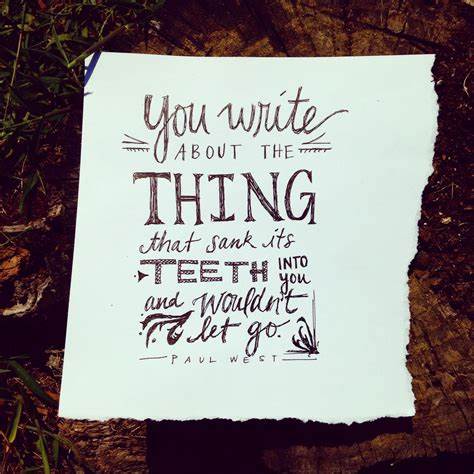 You write
ABOUT THE
THING
that sank its
TEETH INTO you
and wouldn't
let go.
PAUL WEST